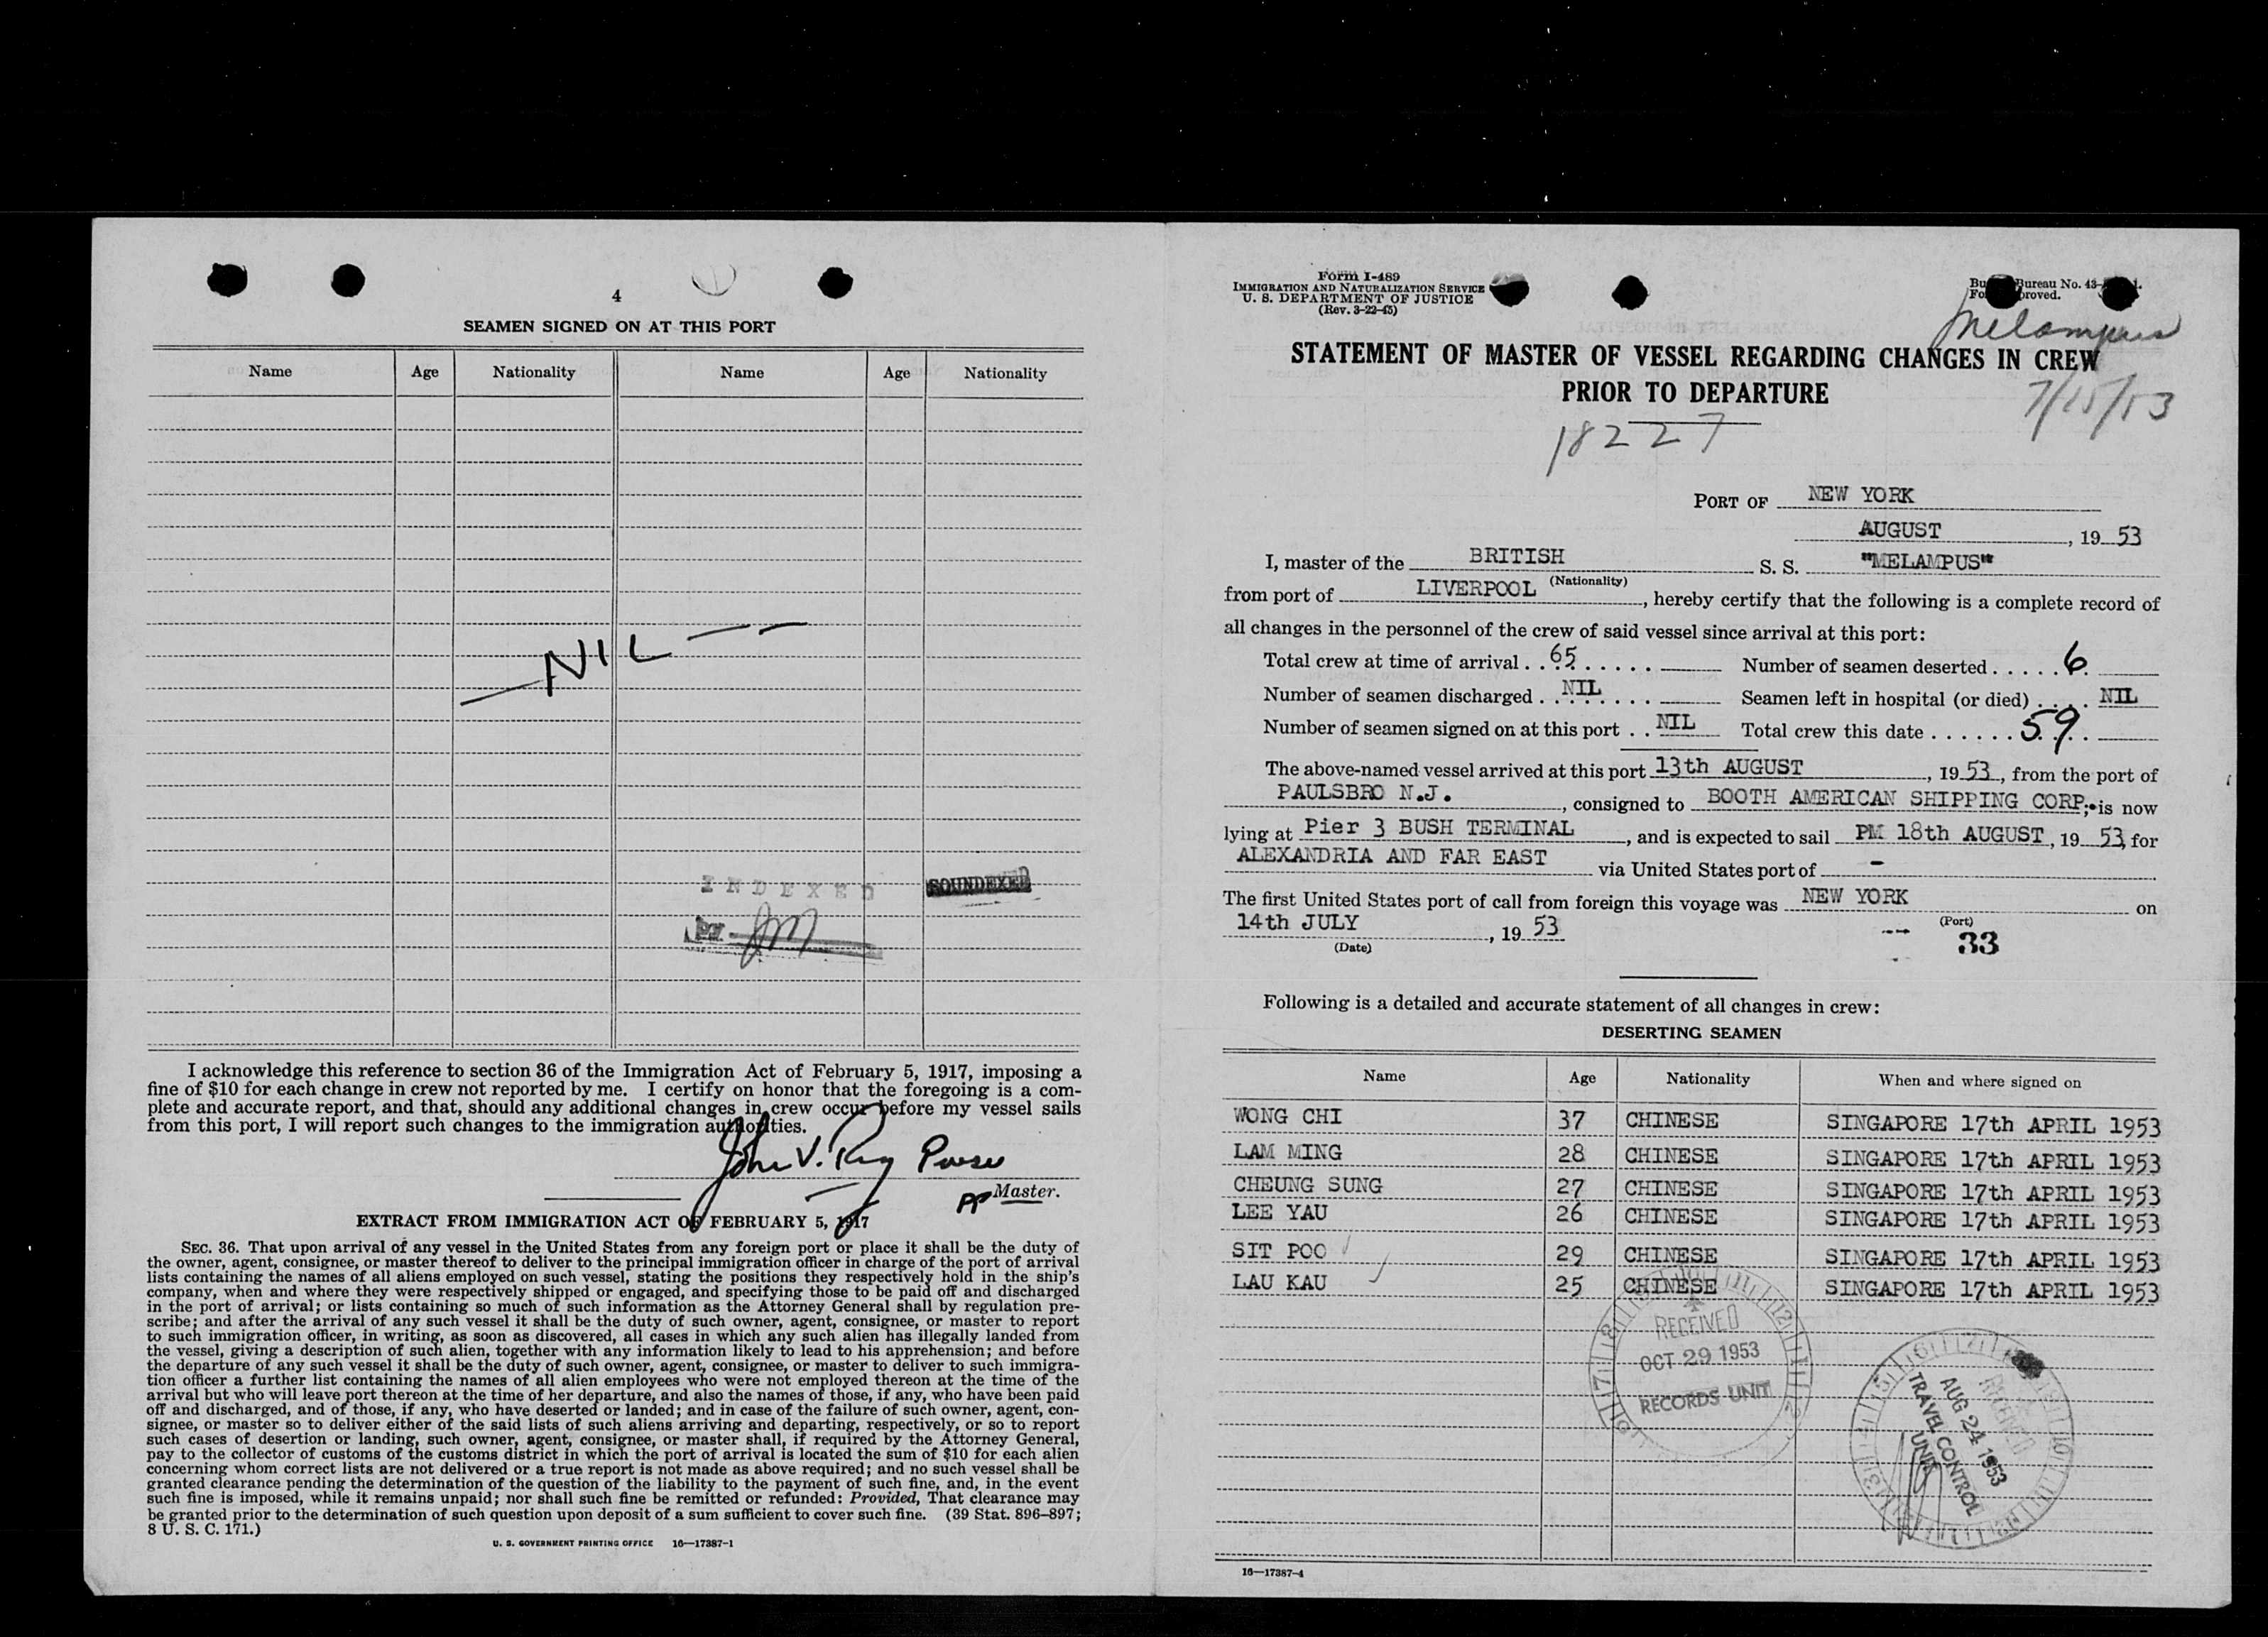 4
SEAMEN SIGNED ON AT THIS PORT
Name Age Nationality Name Age Nationality
— NIL — —
INDEXED
SOUNDEXED
I acknowledge this reference to section 36 of the Immigration Act of February 5, 1917, imposing a
fine of $10 for each change in crew not reported by me. I certify on honor that the foregoing is a com-
plete and accurate report, and that, should any additional changes in crew occur before my vessel sails
from this port, I will report such changes to the immigration authorities.
John V.
Master.
EXTRACT FROM IMMIGRATION ACT OF FEBRUARY 5, 1917
SEC. 36. That upon arrival of any vessel in the United States from any foreign port or place it shall be the duty of
the owner, agent, consignee, or master thereof to deliver to the principal immigration officer in charge of the port of arrival
lists containing the names of all aliens employed on such vessel, stating the positions they respectively hold in the ship's
company, when and where they were respectively shipped or engaged, and specifying those to be paid off and discharged
in the port of arrival; or lists containing so much of such information as the Attorney General shall by regulation pre-
scribe; and after the arrival of any such vessel it shall be the duty of such owner, agent, consignee, or master to report
to such immigration officer, in writing, as soon as discovered, all cases in which any such alien has illegally landed from
the vessel, giving a description of such alien, together with any information likely to lead to his apprehension; and before
the departure of any such vessel it shall be the duty of such owner, agent, consignee, or master to deliver to such immigra-
tion officer a further list containing the names of all alien employees who were not employed thereon at the time of the
arrival but who will leave port thereon at the time of her departure, and also the names of those, if any, who have been paid
off and discharged, and of those, if any, who have deserted or landed; and in case of the failure of such owner, agent, con-
signee, or master so to deliver either of the said lists of such aliens arriving and departing, respectively, or so to report
such cases of desertion or landing, such owner, agent, consignee, or master shall, if required by the Attorney General,
pay to the collector of customs of the customs district in which the port of arrival is located the sum of $10 for each alien
concerning whom correct lists are not delivered or a true report is not made as above required; and no such vessel shall be
granted clearance pending the determination of the question of the liability to the payment of such fine, and, in the event
such fine is imposed, while it remains unpaid; nor shall such fine be remitted or refunded: Provided, That clearance may
be granted prior to the determination of such question upon deposit of a sum sufficient to cover such fine. (39 Stat. 896–897;
8 U. S. C. 171.)
U. S. GOVERNMENT PRINTING OFFICE 16—17387-1
Form I-489
IMMIGRATION AND NATURALIZATION SERVICE
U. S. DEPARTMENT OF JUSTICE
(Rev. 3-22-45)
Bureau No. 43-
Melampus
STATEMENT OF MASTER OF VESSEL REGARDING CHANGES IN CREW
PRIOR TO DEPARTURE
7/15/53
18227
PORT OF NEW YORK
AUGUST, 19 53
I, master of the BRITISH S. S. "MELAMPUS"
(Nationality)
from port of LIVERPOOL, hereby certify that the following is a complete record of
all changes in the personnel of the crew of said vessel since arrival at this port:
Total crew at time of arrival . . 65 Number of seamen deserted . . . . . 6
Number of seamen discharged . NIL Seamen left in hospital (or died) . . . . NIL
Number of seamen signed on at this port . . NIL Total crew this date . . . . . . 59
The above-named vessel arrived at this port 13th AUGUST, 19 53, from the port of
PAULSBRO N.J., consigned to BOOTH AMERICAN SHIPPING CORP.; is now
lying at Pier 3 BUSH TERMINAL, and is expected to sail PM 18th AUGUST, 19 53, for
ALEXANDRIA AND FAR EAST via United States port of -
The first United States port of call from foreign this voyage was NEW YORK on
(Port)
14th JULY, 19 53
(Date)
33
Following is a detailed and accurate statement of all changes in crew:
DESERTING SEAMEN
Name Age Nationality When and where signed on
WONG CHI 37 CHINESE SINGAPORE 17th APRIL 1953
LAM MING 28 CHINESE SINGAPORE 17th APRIL 1953
CHEUNG SUNG 27 CHINESE SINGAPORE 17th APRIL 1953
LEE YAU 26 CHINESE SINGAPORE 17th APRIL 1953
SIT POO 29 CHINESE SINGAPORE 17th APRIL 1953
LAU KAU 25 CHINESE SINGAPORE 17th APRIL 1953
RECEIVED
OCT 29 1953
RECORDS UNIT
RECEIVED
AUG 24 1953
TRAVEL CONTROL
UNIT
16—17387-4